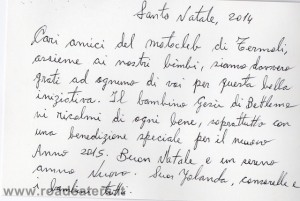 Santo Natale, 2014
Cari amici del motoclub di Termoli,
assieme ai nostri bimbi, siamo davvero
grati ad ognuno di voi per questa bella
iniziativa. Il bambino Gesù di Betlemme
vi ricolmi di ogni bene, soprattutto con
una benedizione speciale per il nuovo
Anno 2015. Buon Natale e un sereno
anno Nuovo. Suor Yolanda, consorelle e
i bambini tutti